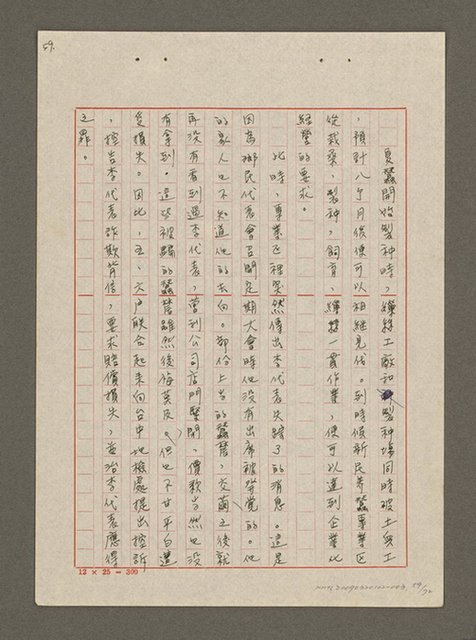 59.
夏蠶開始製種時，繅絲工廠和製種場同時破土興工
，預計八个月後便可以相繼見成。到時候新民養蠶專業区
從栽桑，製种，飼育，繅絲一貫作業，便可以達到企業化
經營的要求。
此時，專業区裡突然傳出李代表失踪了的消息。這是
因為鄉民代表會召開定期大會時他沒有出席被發覺的。他
的家人也不知道他的去向。部份上当的蠶農，交繭之後就
再沒有看到過李代表，當到公司店門緊閉，價款当然也沒
有拿到。這些被騙的蠶農雖然後悔莫及，但也不甘平白遭
受損失。因此，五、六户聯合起來向台中地檢處提出控訴
，控告李代表詐欺背信，要求賠償損失，並治李代表應得
之罪。
12 × 25 = 300
59/72